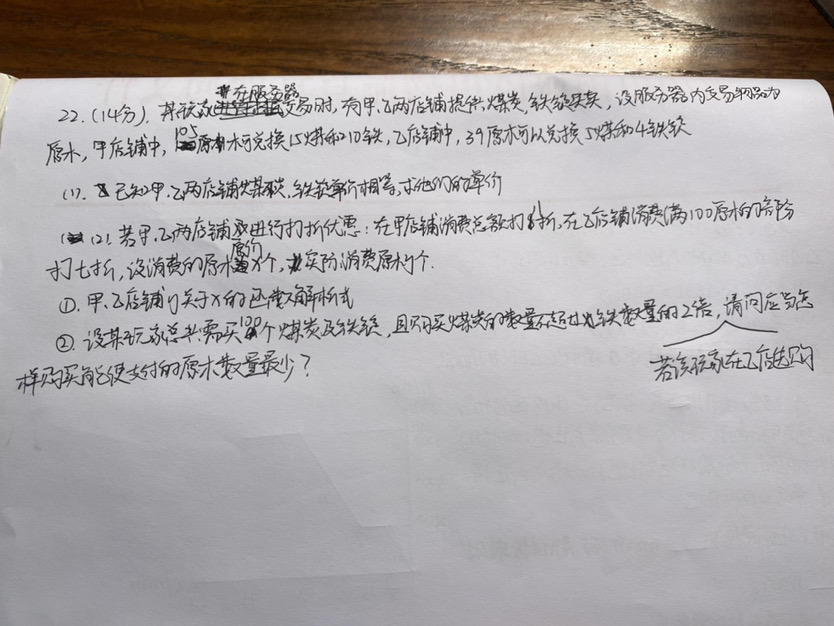 在服务器
22.(14分).某玩家交易时,有甲、乙两店铺提供煤炭,铁锭买卖,设服务器内交易物品为
原木,甲店铺中,105原木可兑换15煤和10铁,乙店铺中,39原木可以兑换5煤和4铁锭
(1).已知甲、乙两店铺煤炭,铁锭单价相等,求他们的单价
(2)若甲、乙两店铺进行打折优惠:在甲店铺消费总额打八折,在乙店铺消费满100原木的部分
打七折,设消费的原木原价X个,实际消费原木y个.
①.甲、乙店铺y关于x的函数解析式
②.设某玩家总共需买100个煤炭及铁锭,且购买煤炭的数量不超过铁数量的2倍,请问应当怎
若该玩家在乙店选购
样购买能使支付的原木数量最少?